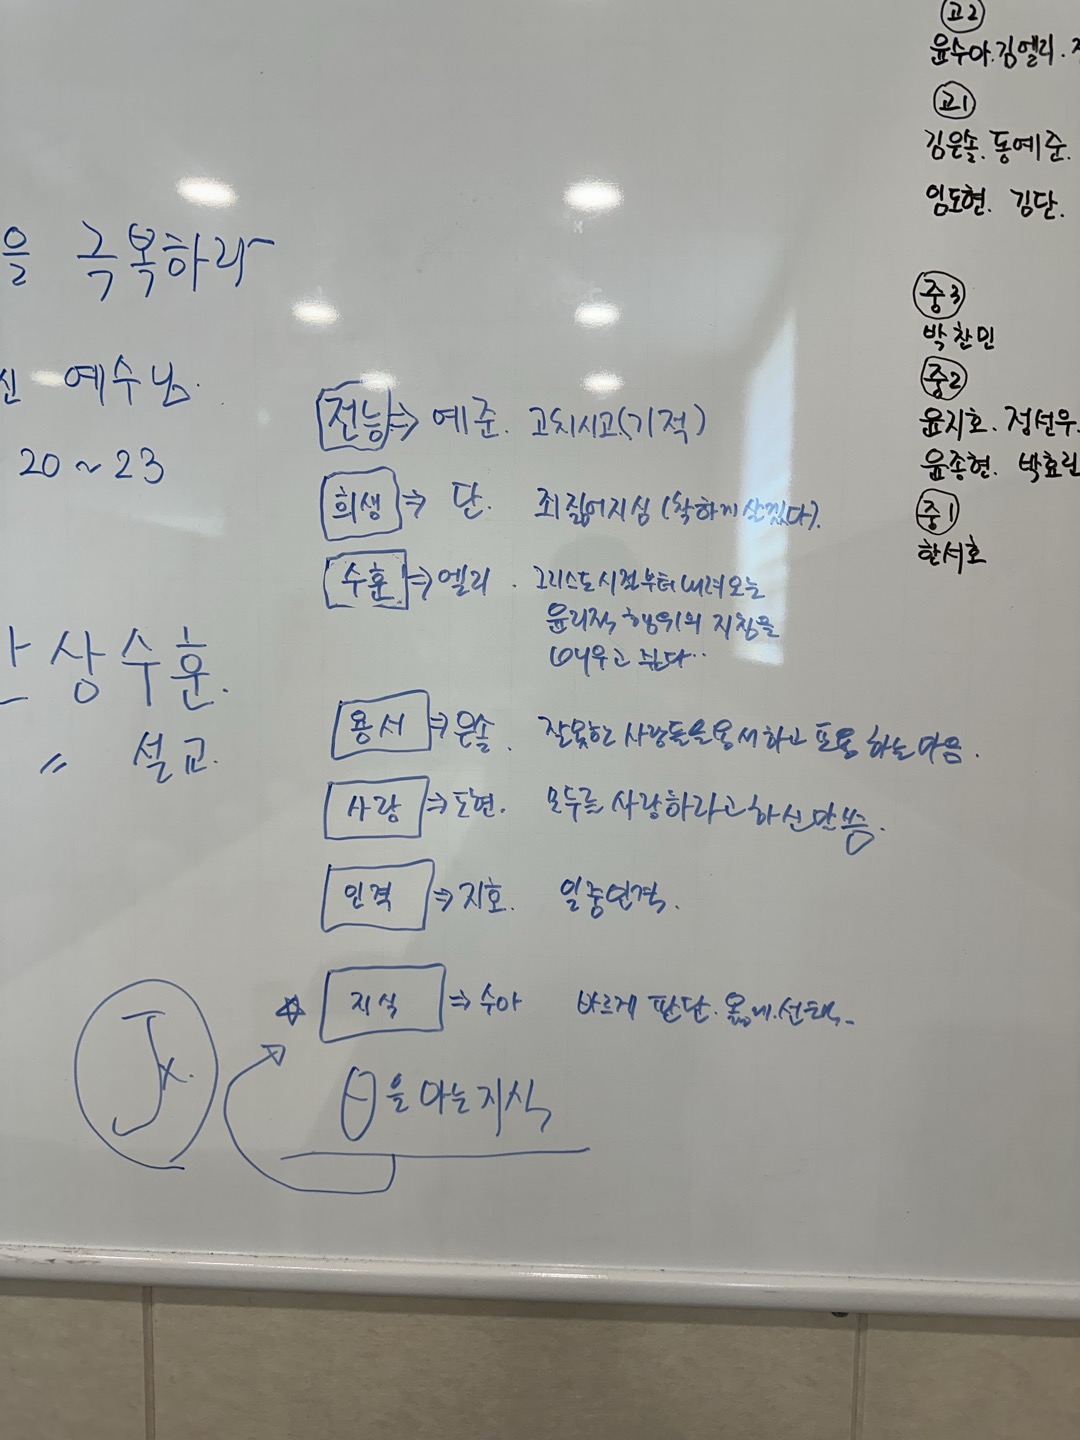 을 극복하라
신 예수님.
20~23
산상수훈.
〃 설교.
전능 ⇒ 예준. 고치시고(기적)
희생 ⇒ 단. 죄 짊어지심 (착하게 살겠다).
수훈 ⇒ 엘리. 그리스도 시절부터 내려오는
윤리적 행위의 지침을
배우고 쉽다..
용서 ⇒ 은솔. 잘못한 사람들을 용서하고 포용 하는 마음.
사랑 ⇒ 도현. 모두를 사랑하라고 하신 말씀.
인격 ⇒ 지호. 일중인격.
☆ 지식 ⇒ 수아 바르게 판단. 옳게. 선택.
θ을 아는 지식
Jx.
고2
윤수아. 김엘리.
고1
김은솔. 동예준.
임도현. 김단.
중3
박찬민
중2
윤지호. 정선우.
윤종현. 박효린
중1
한서호